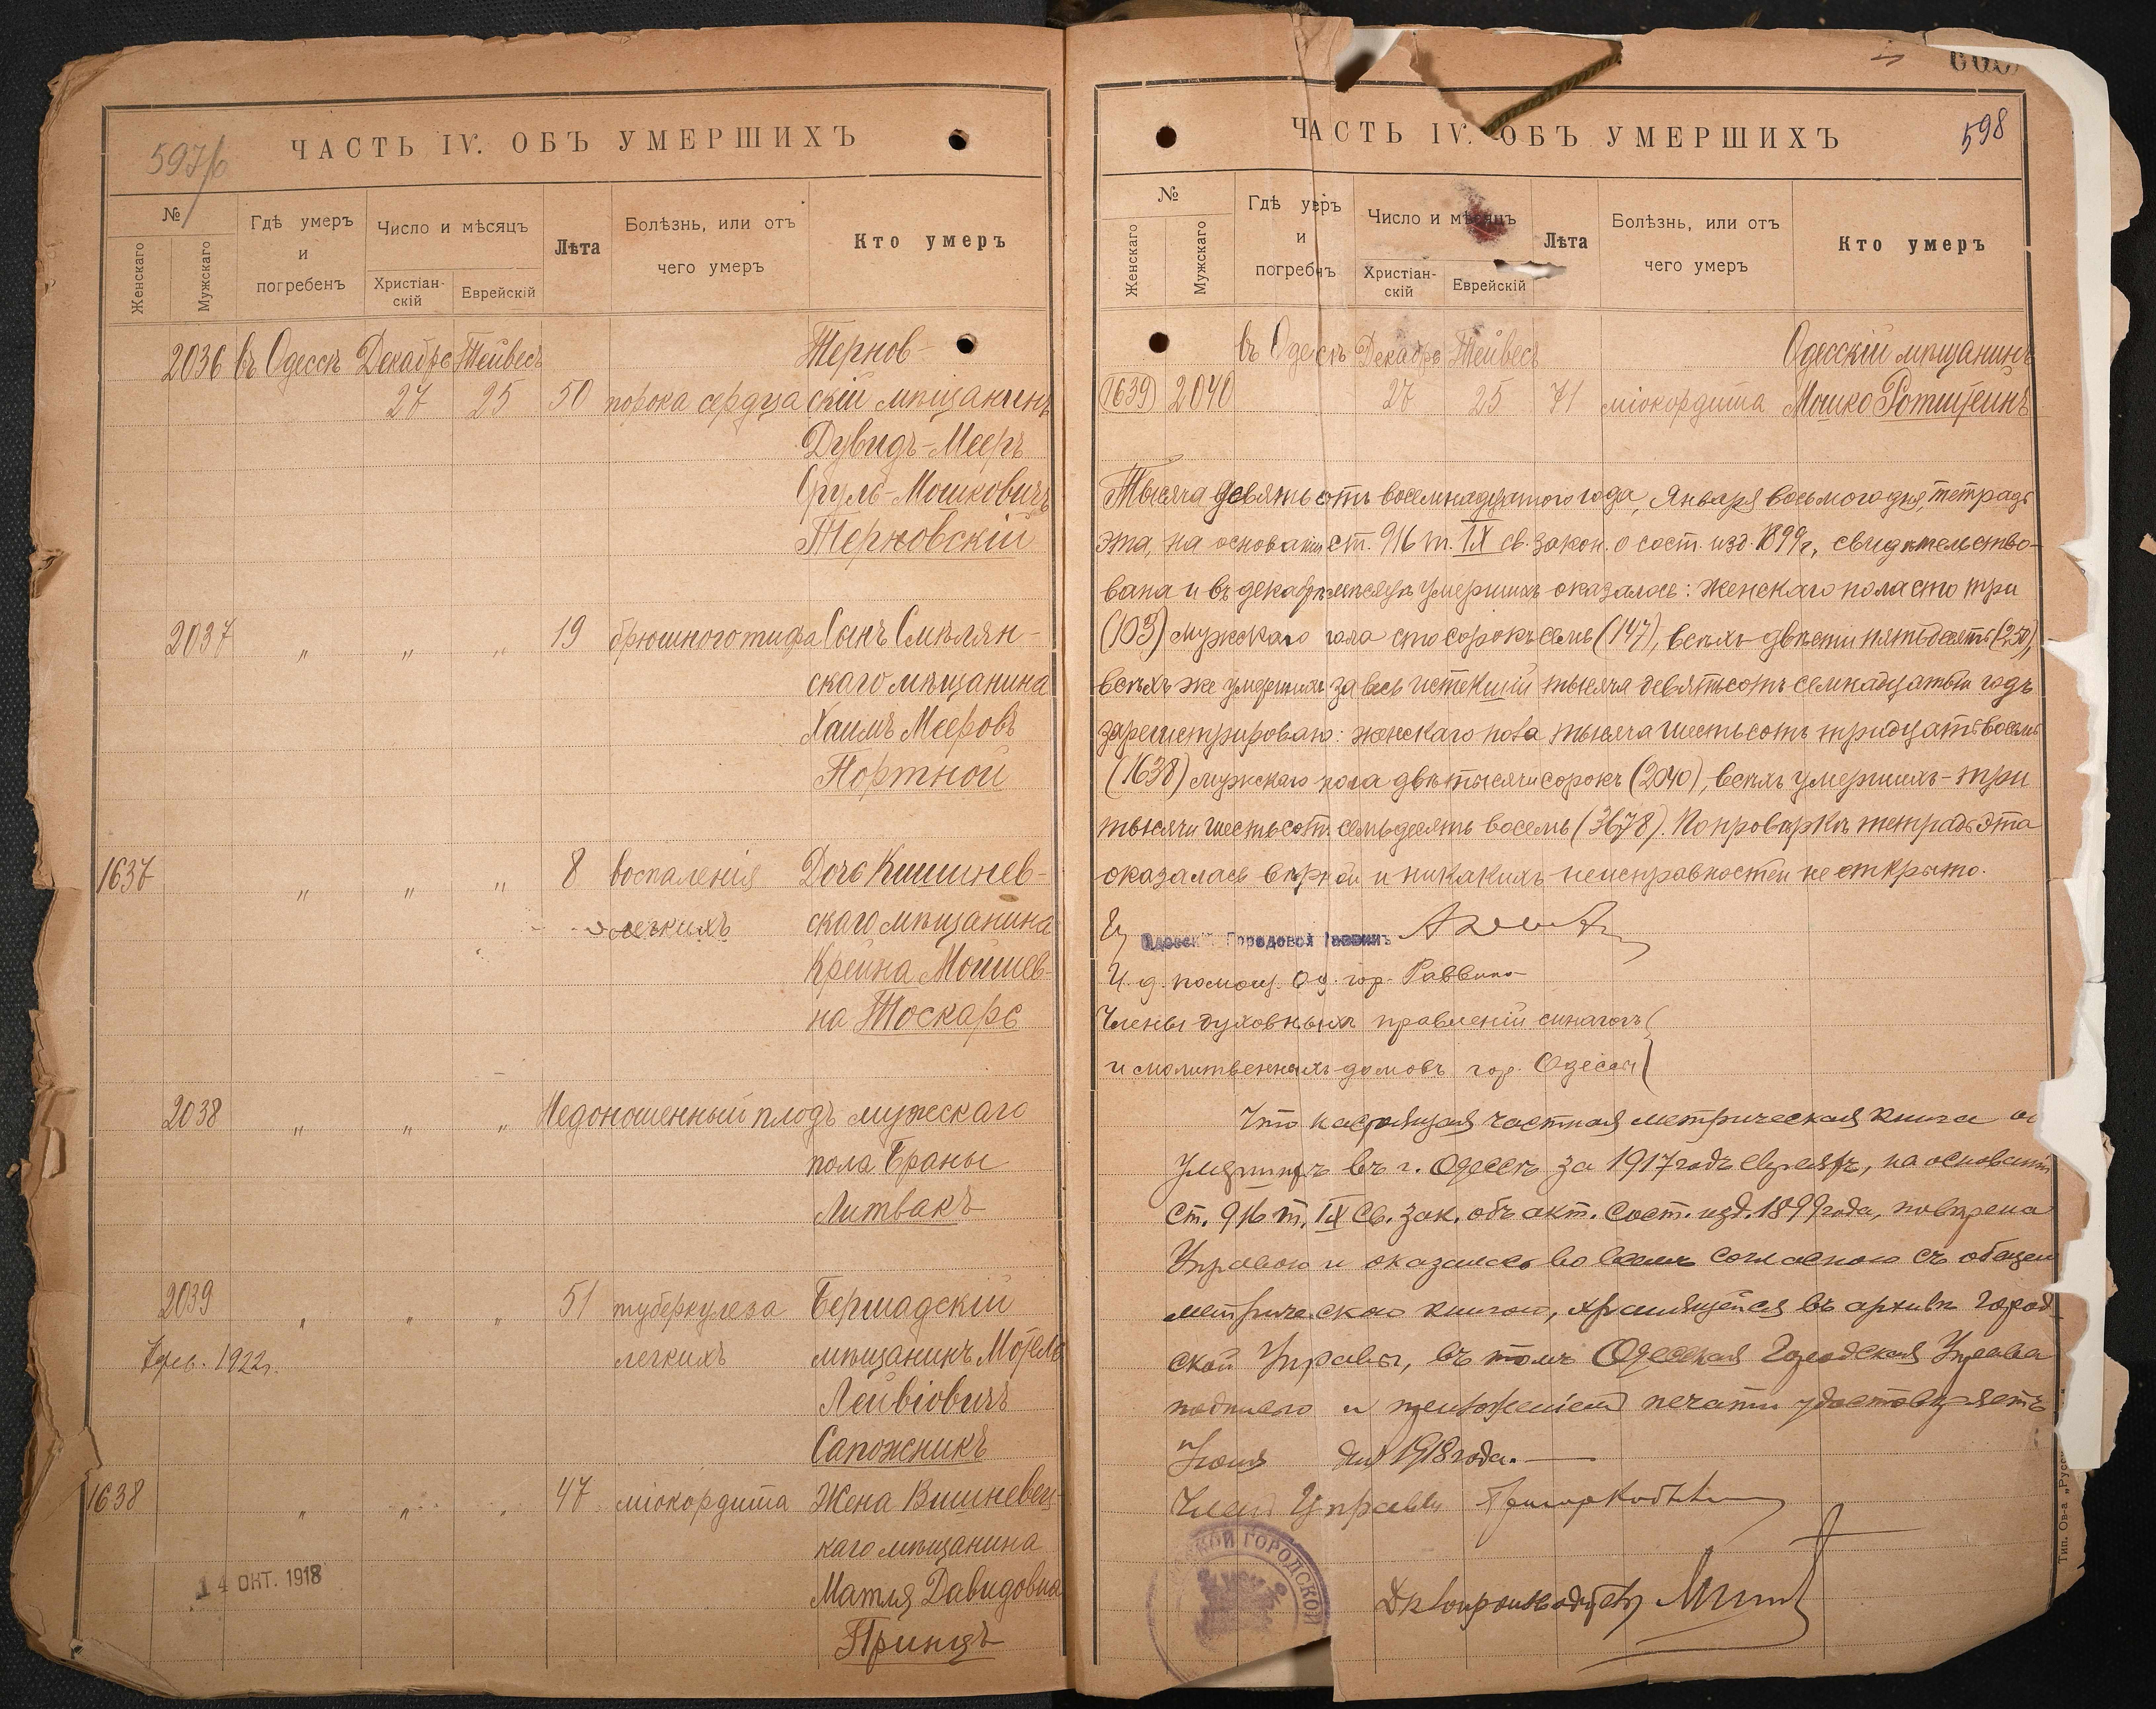 597/б
ЧАСТЬ IV. ОБЪ УМЕРШИХЪ
№
Женскаго
Мужскаго
Гдѣ умеръ
и
погребенъ
Число и мѣсяцъ
Христіан-
скій
Еврейскій
Лѣта
Болѣзнь, или отъ
чего умеръ
Кто умеръ
2036 въ Одессѣ Декабрь Тейвесъ Тернов-
27 25 50 порока сердца скій мѣщанинъ
Дувидъ-Мееръ
Сруль-Мошковичъ
Терновскій
2037 „ „ „ 19 брюшного тифа Сынъ Смѣлян-
скаго мѣщанина
Хаимъ Мееровъ
Портной
1637 „ „ „ 8 воспаленія Дочь Кишинев-
легкихъ скаго мѣщанина
Крейна Мошиев-
на Тоскарь
2038 „ „ „ Недоношенный плодъ мужескаго
пола Браны
Литвакъ
2039 „ „ „ 51 туберкулеза Бершадскій
1922г. легкихъ мѣщанинъ Мотель
Лейвіовичъ
Сапожникъ
1638 „ „ „ 47 міокордита Жена Вишневец-
каго мѣщанина
14 ОКТ. 1918 Матля Давидовна
Принцъ
598
ЧАСТЬ IV. ОБЪ УМЕРШИХЪ
№
Женскаго
Мужскаго
Гдѣ умеръ
и
погребенъ
Число и мѣсяцъ
Христіан-
скій
Еврейскій
Лѣта
Болѣзнь, или отъ
чего умеръ
Кто умеръ
въ Одессѣ Декабрь Тейвесъ Одесскій мѣщанинъ
1639 2040 27 25 71 міокордита Мошко Ротштейнъ
Тысяча девятьсотъ восемнадцатого года, Января восьмого дня, тетрадь
эта, на основаніи ст. 916 т. IX св. закон. о сост. изд. 1899г., свидѣтельство-
вана и въ декабрѣ мѣсяцѣ умершихъ оказалось: женскаго пола сто три
(103) мужскаго пола сто сорокъ семь (147), всѣхъ двѣсти пятьдесятъ (250),
всѣхъ же умершихъ за весь истекшій тысяча девятьсотъ семнадцатый годъ
зарегистрировано: женскаго пола тысяча шестьсотъ тридцать восемь
(1638) мужскаго пола двѣ тысячи сорокъ (2040), всѣхъ умершихъ - три
тысячи шестьсотъ семьдесятъ восемь (3678). По провѣркѣ тетрадь эта
оказалась вѣрной и никакихъ неисправностей не открыто.
Одесскій Городовой Раввинъ
И. д. помощ. Од. гор. Раввина
Члены духовныхъ правленій синагогъ
и молитвенныхъ домовъ гор. Одессы
Что настоящая частная метрическая книга об
умершихъ въ г. Одессѣ за 1917 годъ евреяхъ, на основаніи
ст. 916 т. IX Св. зак. объ акт. сост. изд. 1899 года, повѣрена
Управою и оказалась во всемъ согласною съ общею
метрическою книгою, хранящейся въ архивѣ Город-
ской Управы, въ томъ Одесская Городская Управа
подписью и приложеніемъ печати удостовѣряетъ
Іюня дня 1918 года.
Членъ Управы
СКОЙ ГОРОДСКОЙ
Дѣлопроизводитель
Тип. Ов-а „Русс